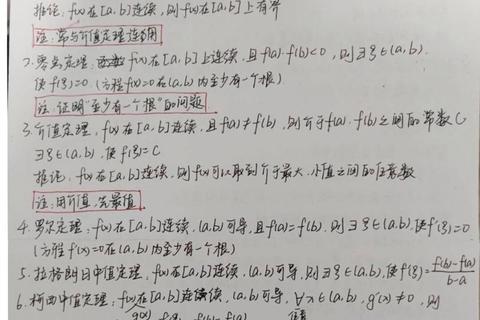 推论: f(x)在[a,b]连续, 则f(x)在[a,b]上有界
注: 常与介值定理连用
2.零点定理: 函数f(x)在[a,b]上连续, 且f(a)·f(b)<0, 则∃ξ∈(a,b).
使f(ξ)=0 (方程f(x)=0在(a,b)内至少有一个根)
注: 证明"至少有一个根"的问题
3.介值定理, f(x)在[a,b]连续, 且f(a)≠f(b), 则介于f(a)、f(b)之间的常数C
∃ξ∈(a,b), 使f(ξ)=C
推论, f(x)在[a,b]连续, 则f(x)可以取到介于最大、小值之间的任意数
注: 用介值, 先最值
4.罗尔定理: f(x)在[a,b]连续, (a,b)可导, 且f(a)=f(b). 则∃ξ∈(a,b), 使f'(ξ)=0
(方程f'(x)=0在(a,b)内至少有一个根)
5.拉格朗日中值定理, f(x)在[a,b]连续, (a,b)可导, 则∃ξ∈(a,b), 使f'(ξ)=f(b)-f(a)/b-a
6.柯西中值定理: f(x)在[a,b]连续, (a,b)可导, ∀x∈(a,b), g'(x)≠0, 则
g(x) f(b)-f(a)